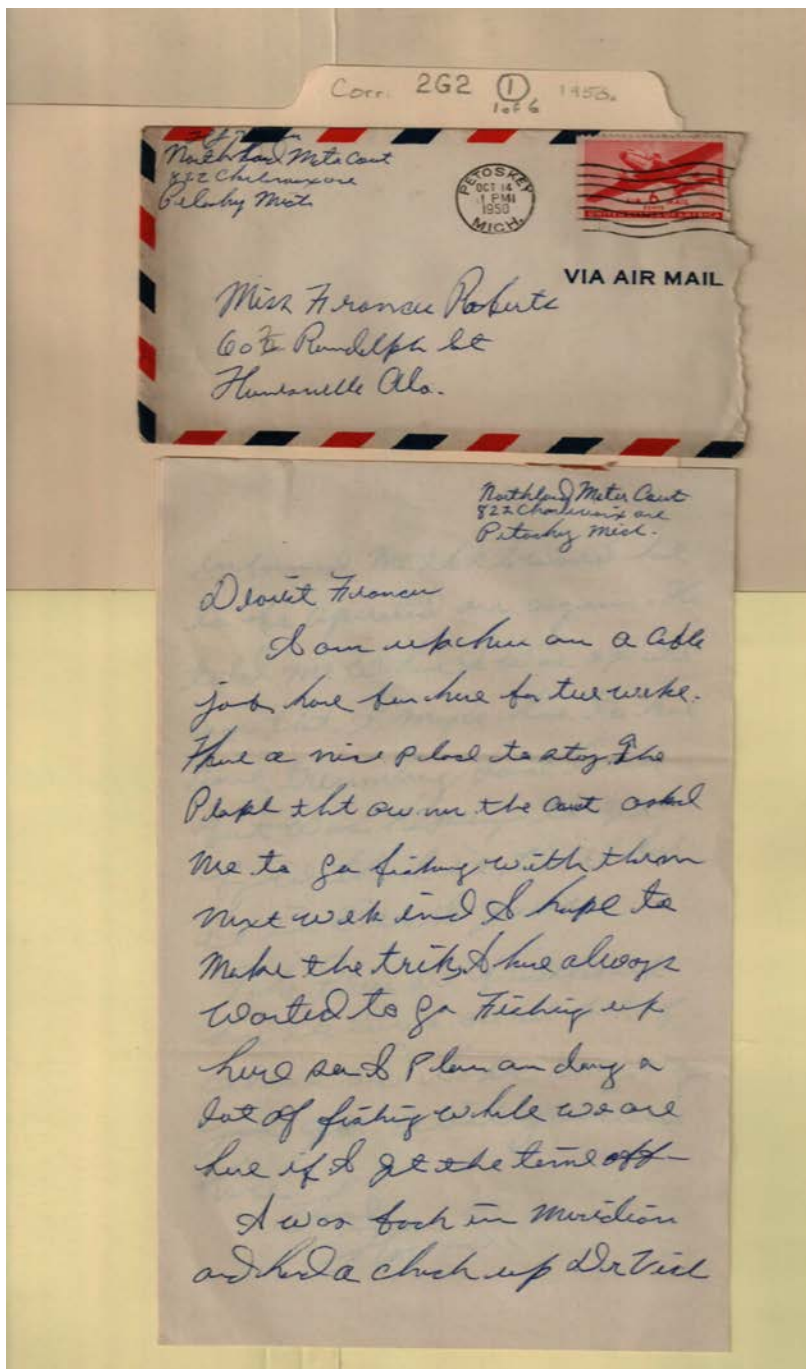 Corr. 2G2 1 1950.
1 of 6
Northland
822
Mich
PETOSKEY
OCT 14
1 PM
1950
MICH.
6
UNITED STATES OF AMERICA
VIA AIR MAIL
Miss Frances Roberts
603 Randolph St
Huntsville Ala.
Northland Motor Court
822 Charlevoix ave
Petoskey Mich.
Dearest Frances
I am up here on a cable
job, have been here for two weeks.
Have a nice place to stay. The
People tht owns the court asked
me to go fishing with them
next wek end I hope to
make the trip, I have always
wanted to go Fishing up
here so I plan on doing a
lot of fishing while we are
here if I get the time off
I was back in Meridian
and had a check up Dr